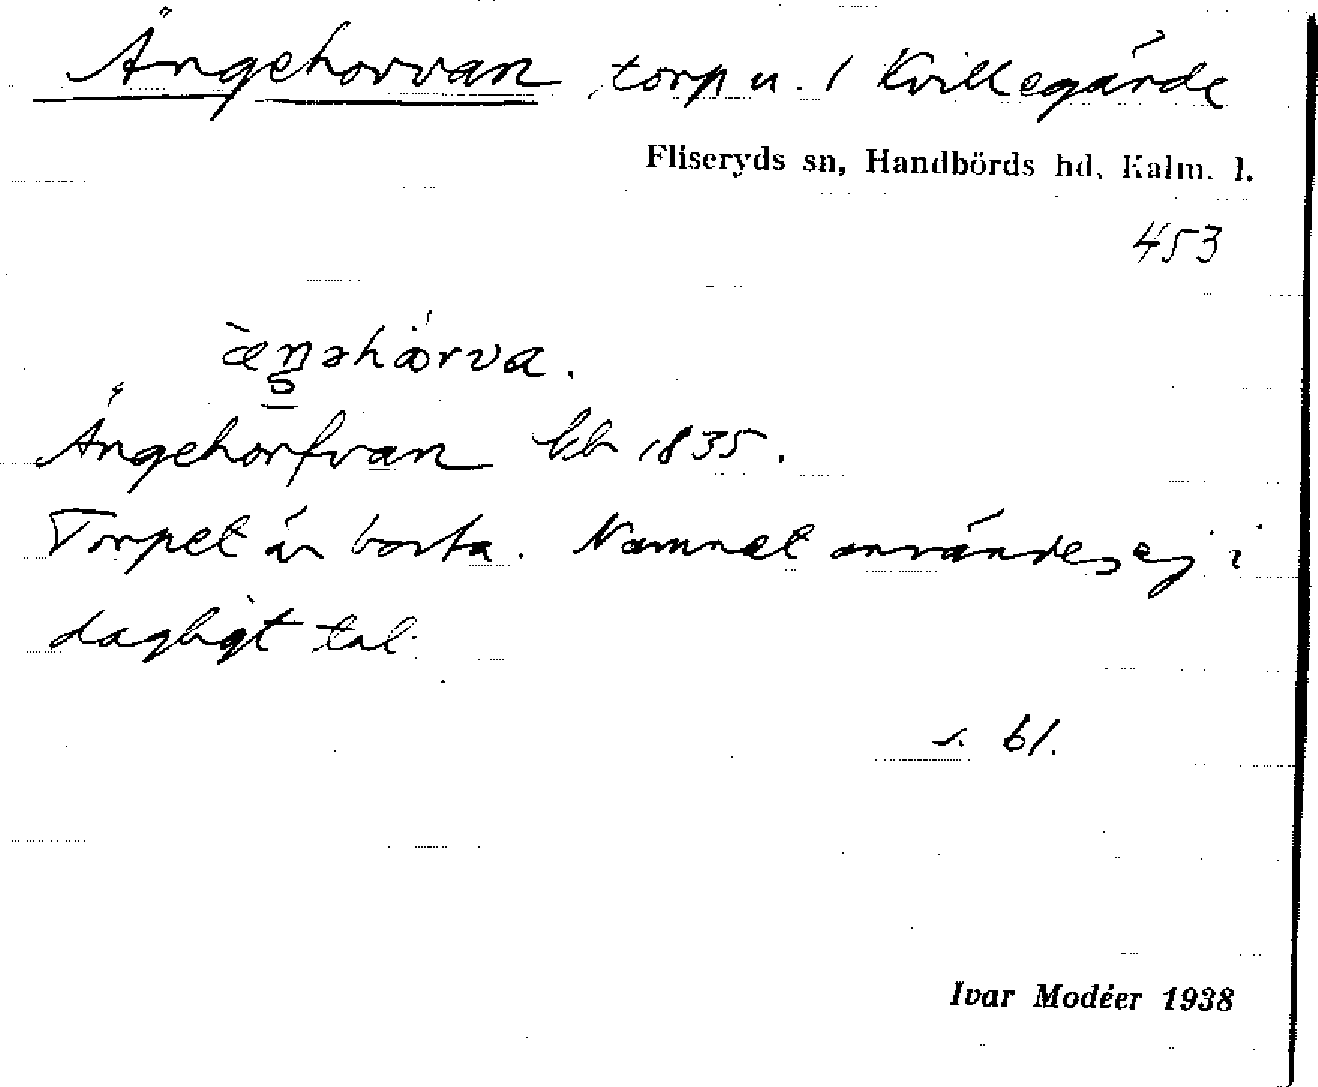 Ängehorvan torp u. 1 Kvillegärde
Fliseryds sn, Handbörds hd, Kalm. l.
453
æ̀ŋəhǻrva.
Ängehorfvan kb 1835.
Torpet är borta. Namnet användes ej i
dagligt tal.
s. 61.
Ivar Modéer 1938